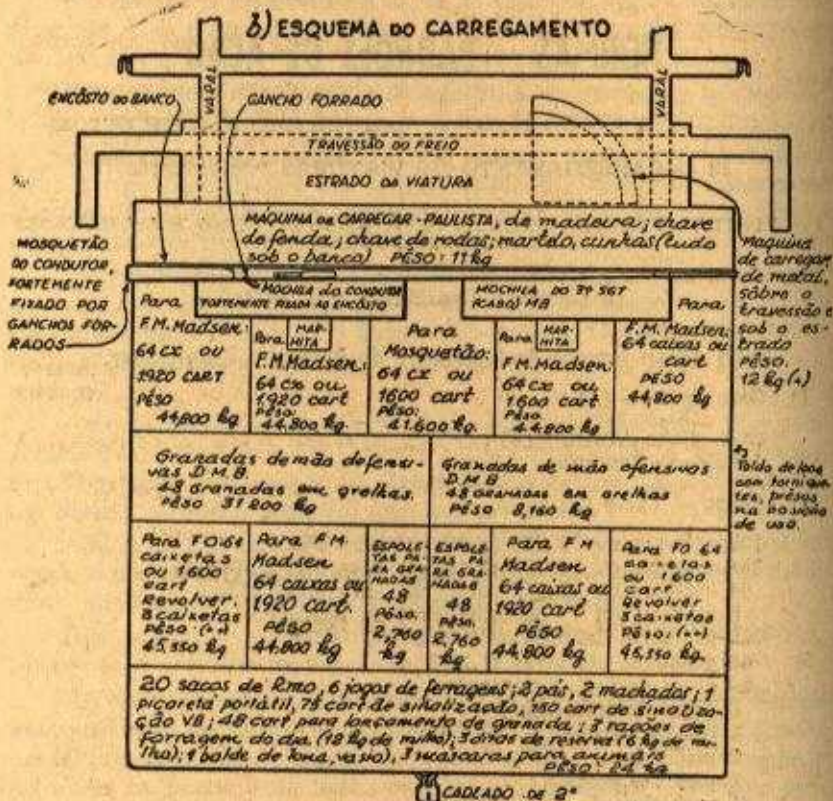 b) ESQUEMA DO CARREGAMENTO
VARAL
VARAL
ENCÔSTO DO BANCO
GANCHO FORRADO
TRAVESSÃO DO FREIO
ESTRADO DA VIATURA
MÁQUINA DE CARREGAR - PAULISTA, de madeira; chave
de fenda; chave de rodas; martelo, cunhas (tudo
sob o banco) PÊSO: 11 kg
MOSQUETÃO
DO CONDUTOR,
FORTEMENTE
FIXADO POR
GANCHOS FOR-
RADOS
Maquina
de carregar
de metal,
sôbre o
travessão e
sob o es-
trado
PÊSO.
12 kg
MOCHILA do CONDUTOR
FORTEMENTE FIXADA AO ENCÔSTO
MOCHILA DO 3º SGT
(CABO) MB
Para
F.M. Madsen:
64 cx ou
1920 CART
PÊSO
44,800 kg
MAR-
MITA
Para
F.M. Madsen:
64 cx ou
1920 cart
PÊSO:
44,800 kg.
Para
Mosquetão:
64 cx ou
1600 cart
PÊSO:
41.600 kg.
MAR-
MITA
Para
F.M. Madsen:
64 cx ou
1600 cart
PÊSO.
44.800 kg.
Para
F.M. Madsen:
64 caixas ou
cart
PÊSO
44,800 kg
Granadas de mão defensi-
vas D.M.B.
48 Granadas em grelhas.
PÊSO 31 200 kg
Granadas de mão ofensivas
D M B
48 GRANADAS EM grelhas
PÊSO 8,160 kg
Toldo de lona
com tornique-
tes, prêsos
na posição
de uso.
Para FO 64
caixetas
ou 1600
cart
Revolver.
3 caixetas
PÊSO:
45,350 kg.
Para F M
Madsen
64 caixas ou
1920 cart.
PÊSO
44,800 kg
ESPOLE-
TAS PA
RA GRA-
NADAS
48
PÊSO.
2,760
kg
ESPOLE-
TAS PA
RA GRA-
NADAS
48
PÊSO.
2,760
kg
Para F M
Madsen
64 caixas ou
1920 cart.
PÊSO
44,800 kg
Para FO 64
caixetas
ou 1600
cart
Revolver
3 caixetas
PÊSO:
45,350 kg.
20 sacos de Rmo, 6 jogos de ferragens; 2 pás, 2 machados; 1
picareta portátil, 75 cart de sinalização, 150 cart de sinaliza-
ção VB; 48 cart para lançamento de granada; 3 rações de
forragem do dia (12 kg de milho); 3 ditas de reserva (6 kg de mi-
lho); 1 balde de lona, vasio), 3 mascaras para animais
PÊSO: 24 kg
CADEADO DE 2"